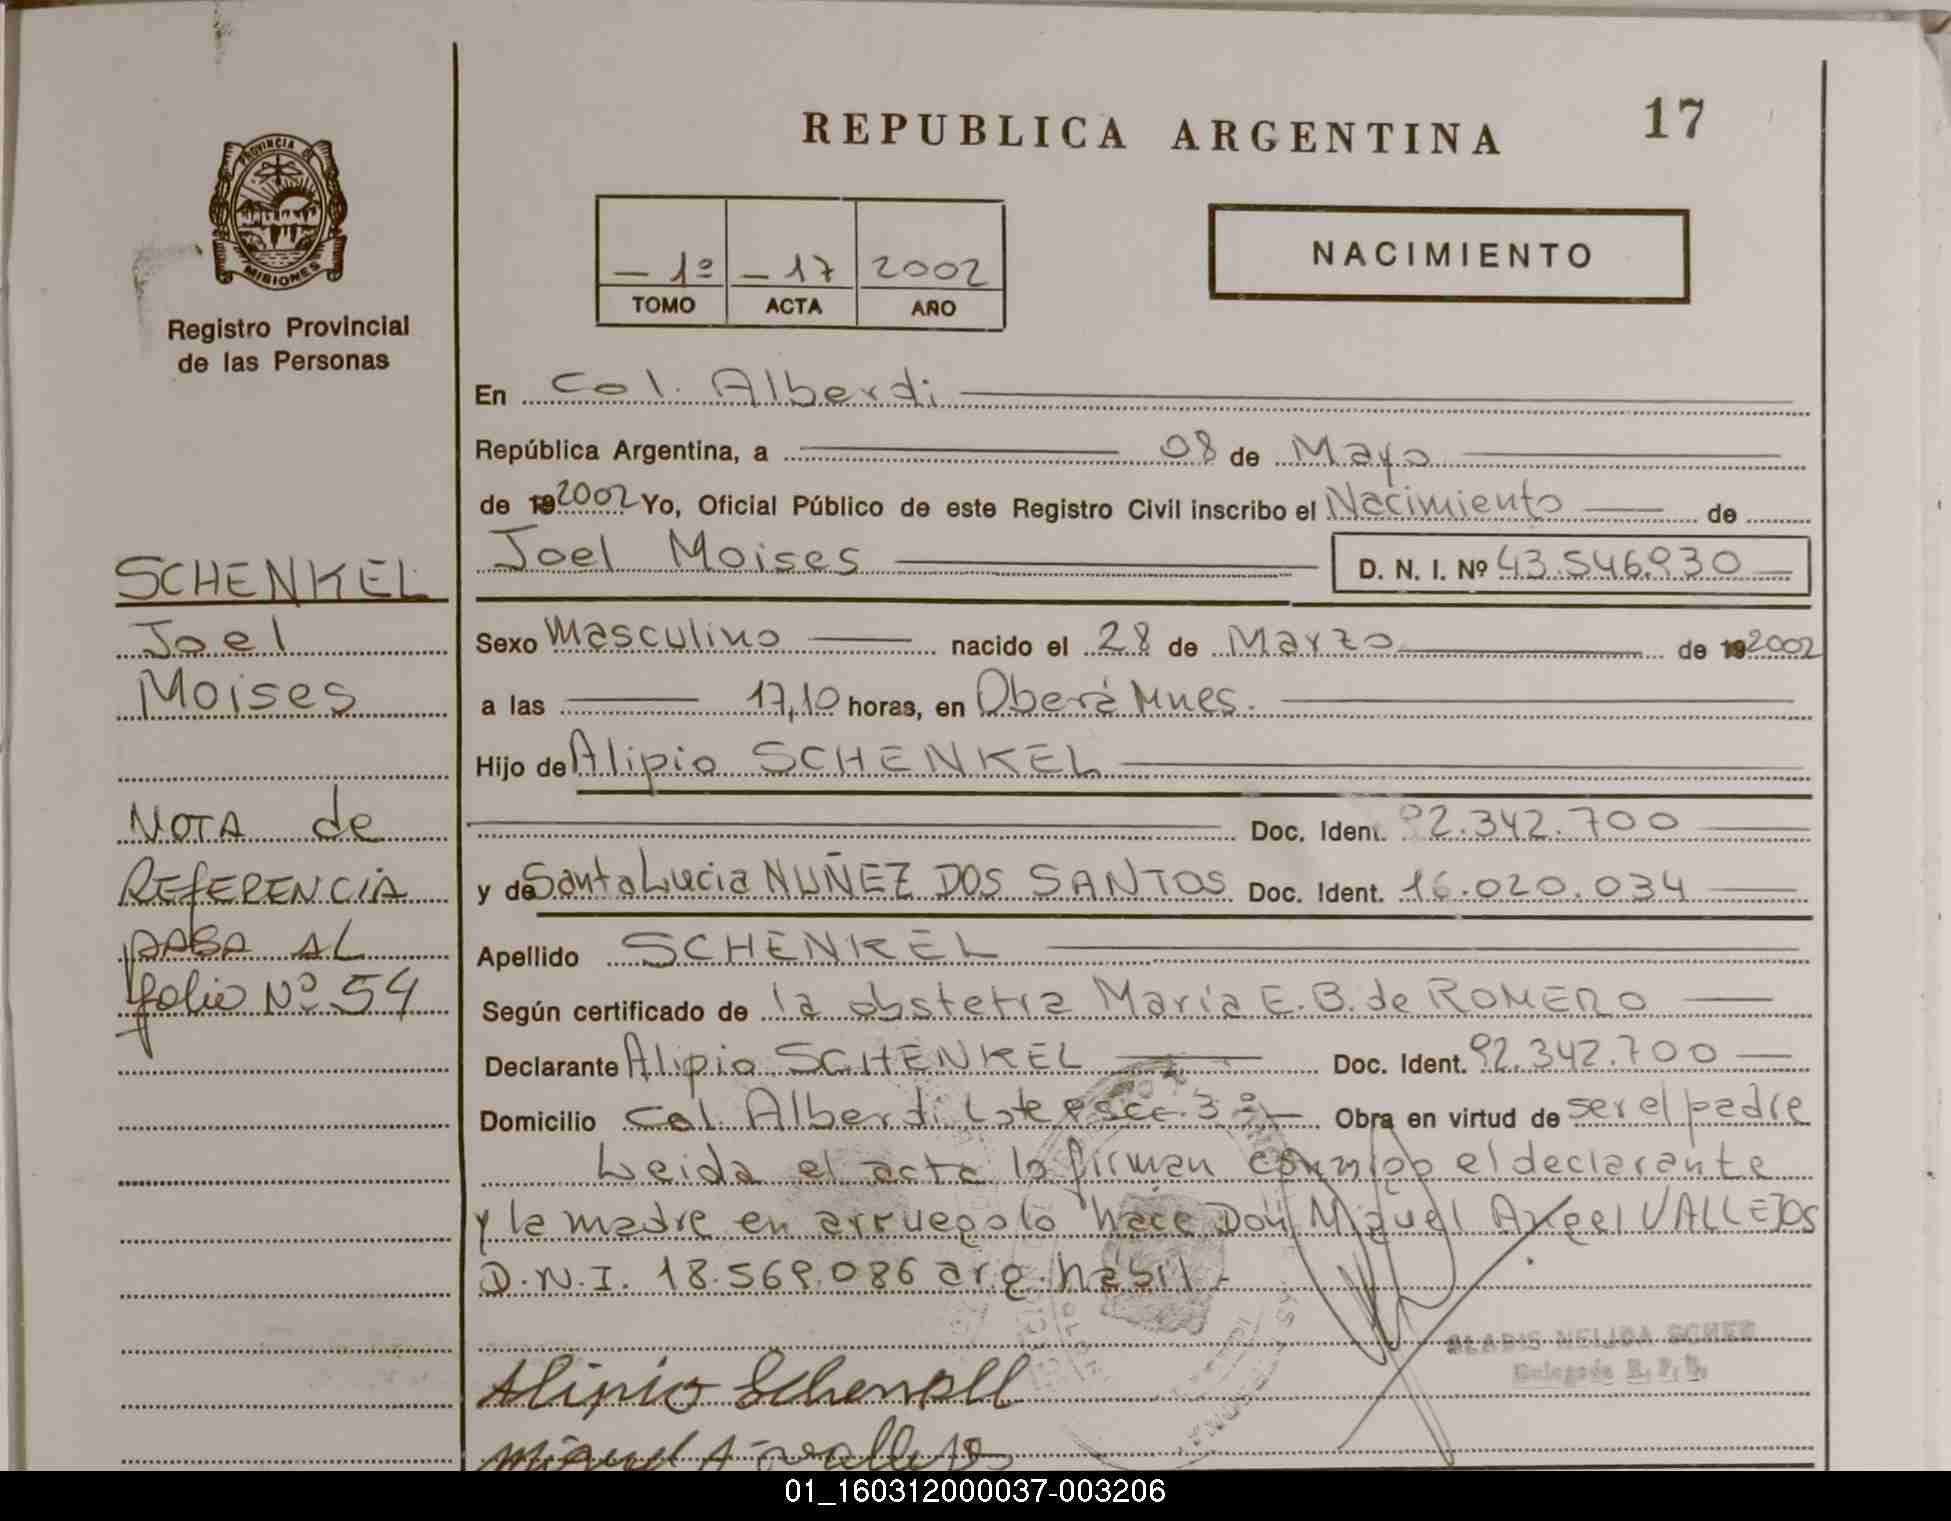 REPUBLICA ARGENTINA
17
PROVINCIA DE
MISIONES
Registro Provincial
de las Personas
- 1º - 17 2002
TOMO ACTA AÑO
NACIMIENTO
En Col. Alberdi
República Argentina, a 08 de Mayo
de 19 2002 Yo, Oficial Público de este Registro Civil inscribo el Nacimiento de
Joel Moises D. N. I. Nº 43.546.930
SCHENKEL
Joel
Moises
Sexo Masculino nacido el 28 de Marzo de 19 2002
a las 17,10 horas, en Oberá Mnes.
Hijo de Alipio SCHENKEL
Doc. Ident. 92.342.700
y de Santa Lucia NUÑEZ DOS SANTOS Doc. Ident. 16.020.034
NOTA de
REFERENCIA
PASA AL
folio Nº 54
Apellido SCHENKEL
Según certificado de la obstetra María E. B. de ROMERO
Declarante Alipio SCHENKEL Doc. Ident. 92.342.700
Domicilio Col. Alberdi Lote esc. 3º Obra en virtud de ser el padre
Leida el acta lo firman conmigo el declarante
y la madre en arruego lo hace Don Miguel Angel VALLEJOS
D.N.I. 18.569.086 arg. habil.
GLADIS NELIDA SCHER
Delegada R. P. P.
Alipio Schenkell
Miguel A Vallejos
01_160312000037-003206